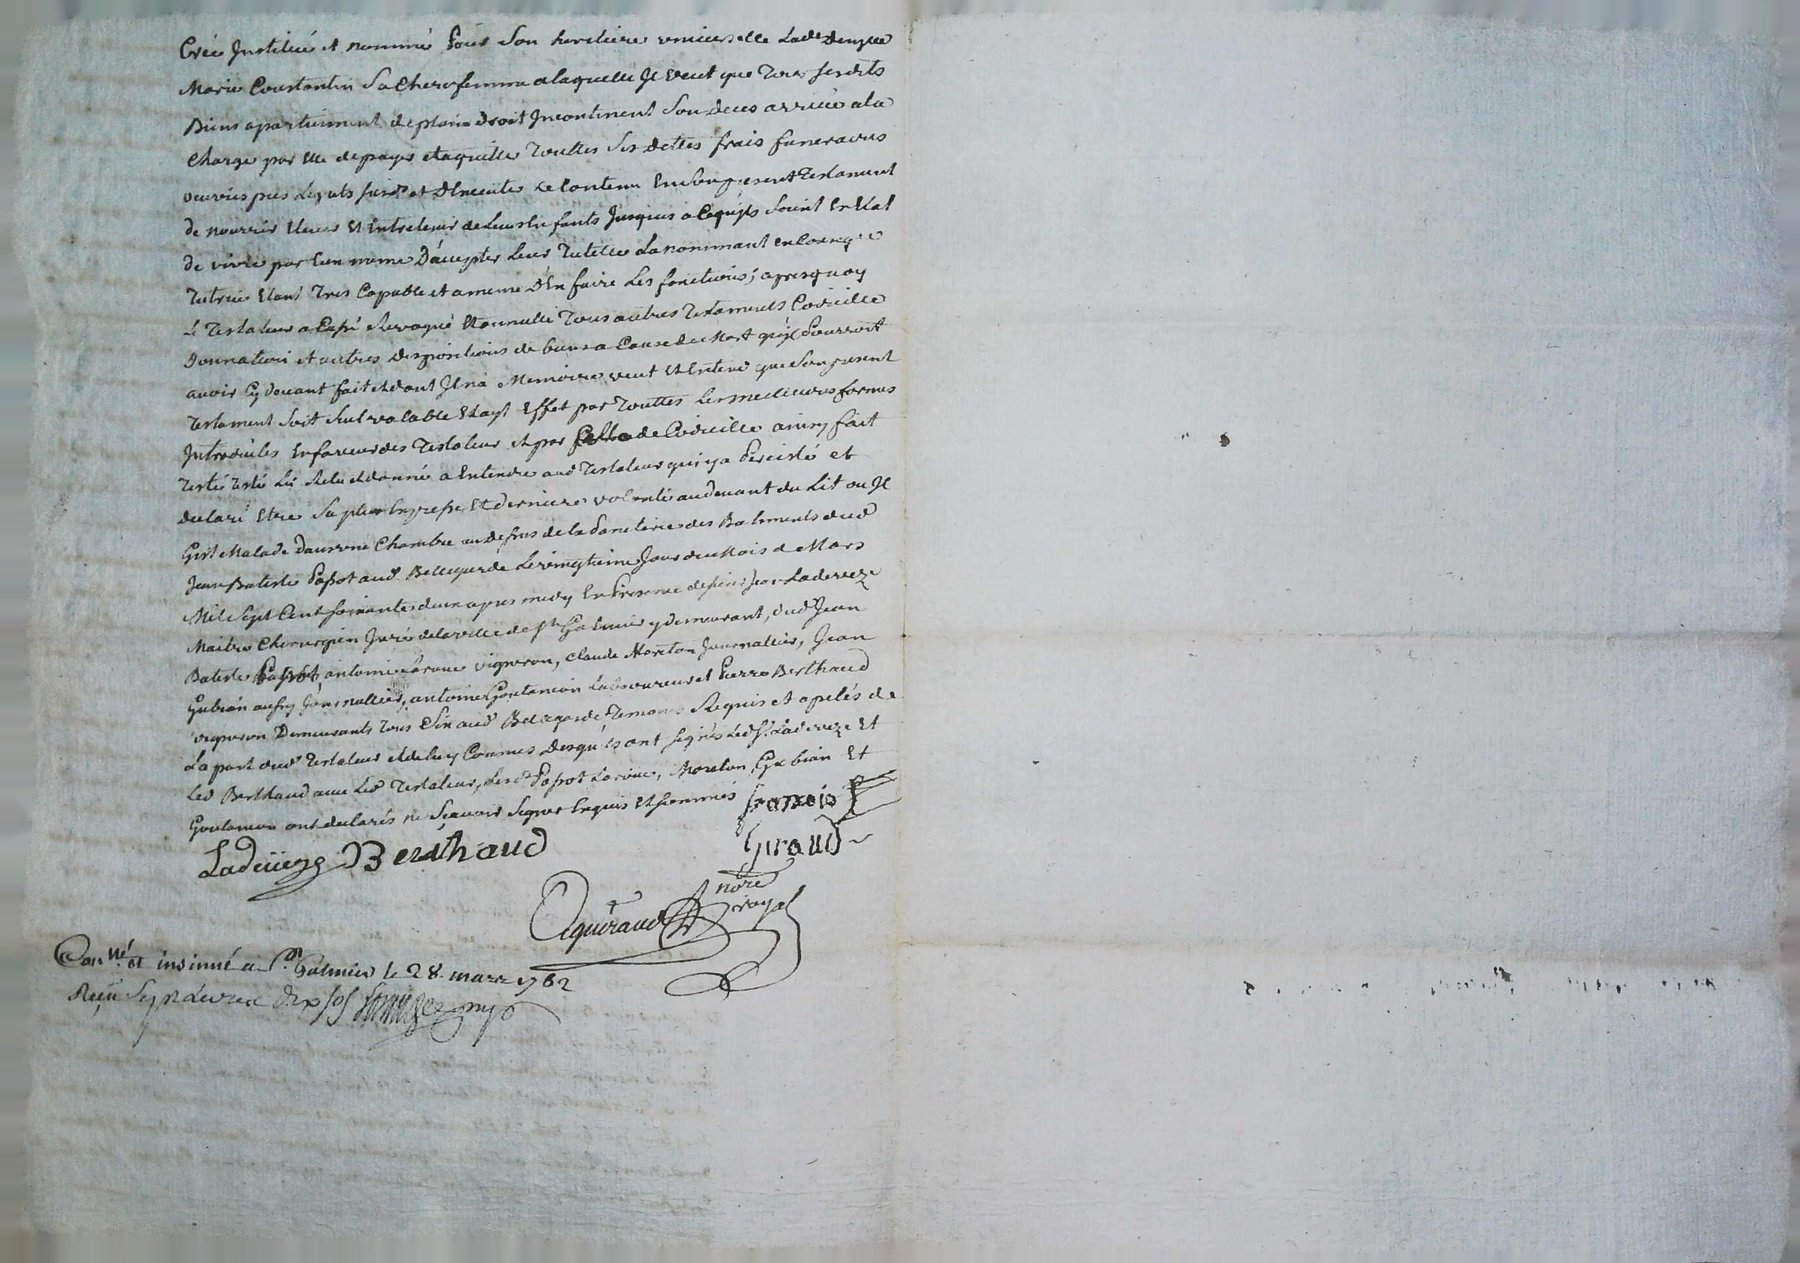 Créé Institué et nommé pour son heritiere universelle Lade
Marie Constantin Sa Chere femme alaquelle Il veut que tous sesdits
Biens apartiennent de plain droit Incontinent son deces arrivé ala
Charge par Elle depayer etaquitter touttes ses dettes frais funeraires
oeuvres pies Legats susd.s et dExecuter le Contenu En son present testament
de nourrir Elever Et Entretenir de Leurs Enfants Jusques aCequils soient En Etat
de vivre par Eux meme Daccepter Leur tutelle La nommant
tutrice Etant tres Capable et ameme dEn faire Les fonctions; apresquoy
le testateur a Cassé Revoqué Etannullé tous autres testaments Codicille
Donnation et autres dispositions de biens a Cause de Mort quil pourroit
avoir Cydevant fait etdont Il na Memoire veut et Entend que son present
testament soit seul valable Etayt Effet par touttes les meilleures formes
Introduites Enfaveur des testateur et par Celle de Codicille ainsy fait
testé Leu Releu etdonné a Entendre aud testateur quiya Persisté et
declaré Etre sa plus Expresse Et derniere volonté audevant du Lit ou Il
Gist Malade dans une Chambre au dessus de la Paneterie des Batiments dud
Jean Batiste Papot aud Bellegarde Le vingtieme Jour du Mois de Mars
Mil Sept Cent soixante deux apres midy En Presence de sieur Jean Ladeveze
Maitre Chirurgien Juré delaville de St Galmier ydemeurant, dud Jean
Batiste Papot, antoine vigneron, Claude Moreton Journallier, Jean
Gubian aussy Journallier, antoine Goutanion Laboureur et Pierre Berthaud
vigneron Demeurants tous Six aud Bellegarde temoins Requis et apelés de
La part dud testateur et deluy Connus desquels ont signés Led Sr Ladeveze Et
Led Berthaud avec Led testateur, Lesd Papot, Moreton, Gubian Et
Goutanion ont declarés ne Scavoir Signer Enquis Et sommés françois
Giraud
Ladeveze Berthaud
nore
royal
Con.lé et insinué a St Galmier le 28 mars 1762
Reçu sept Livres dix sols